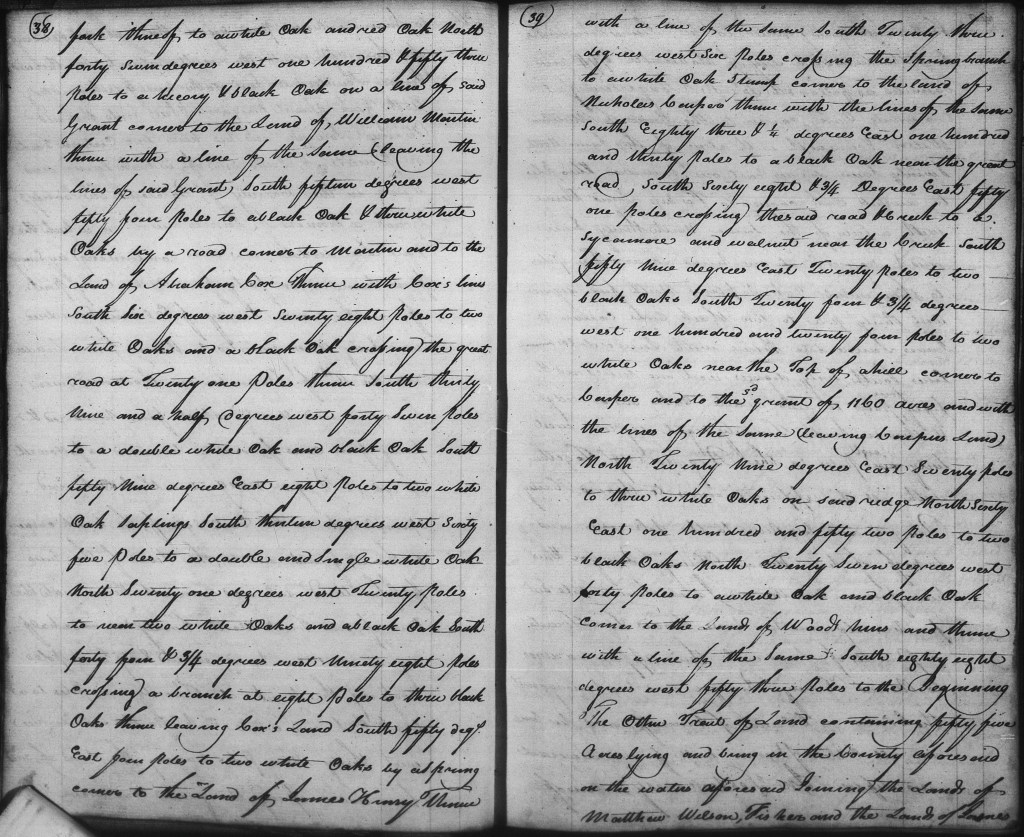 38
fork thereof to a white Oak and red Oak North
forty Seven degrees west one hundred & fifty three
Poles to a hicory & black Oak on a line of said
Grant corner to the Land of William Martin
thence with a line of the same (leaving the
lines of said Grant) South fifteen degrees west
fifty four Poles to a black Oak & three white
Oaks by a road corner to Martin and to the
Land of Abraham Cox Thence with Cox's line
South Six degrees west Seventy eight Poles to two
white Oaks and a black Oak crossing the great
road at Twenty one Poles thence South thirty
Nine and a half degrees west forty Seven Poles
to a double white Oak and black Oak South
fifty Nine degrees East eight Poles to two white
Oak Saplings South thirteen degrees west Sixty
five Poles to a double and Single white Oak
North Seventy one degrees west Twenty Poles
to near two white Oaks and a black Oak South
forty four & 3/4 degrees west Ninety eight Poles
crossing a branch at eight Poles to three black
Oaks thence leaving Cox's Land South fifty degs
East four Poles to two white Oaks by a Spring
corner to the Land of James Henry Thence
39
with a line of the same South Twenty three
degrees west Six Poles crossing the Spring branch
to a white Oak Stump corner to the land of
Nicholas Caspers thence with the lines of the same
South Eighty three & 1/4 degrees East one hundred
and thirty Poles to a black Oak near the great
road, South Sixty eight & 3/4 Degrees East fifty
one Poles crossing the said road & Creek to a
Sycamore and walnut near the Creek South
fifty Nine degrees East Twenty Poles to two
black Oaks South Twenty four & 3/4 degrees
west one hundred and twenty four poles to two
white Oaks near the Top of a hill corner to
Caspers and to the sd grant of 1160 acres and with
the lines of the same (leaving Caspers Land)
North Twenty Nine degrees East Seventy Poles
to three white Oaks on said ridge North Sixty
East one hundred and fifty two Poles to two
black Oaks North Twenty Seven degrees west
forty Poles to a white Oak and black Oak
corner to the Lands of Woods heirs and thence
with a line of the Same South eighty eight
degrees west fifty three Poles to the Beginning
The Other Tract of Land containing fifty five
Acres lying and being in the County aforesaid
on the waters aforesaid Joining the Lands of
Matthew Wilson, Fisher and the Lands of James